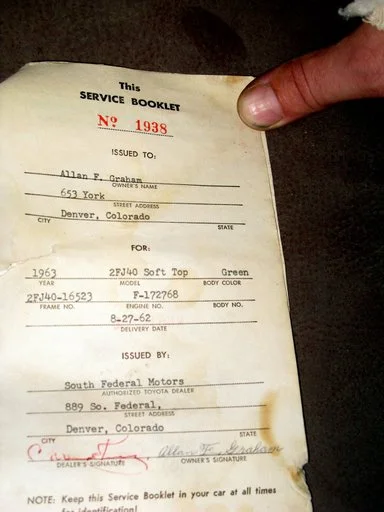 This
SERVICE BOOKLET
Nº 1938
ISSUED TO:
Allan F. Graham
OWNER'S NAME
653 York
STREET ADDRESS
Denver, Colorado
CITY STATE
FOR:
1963 2FJ40 Soft Top Green
YEAR MODEL BODY COLOR
2FJ40-16523 F-172768
FRAME NO. ENGINE NO. BODY NO.
8-27-62
DELIVERY DATE
ISSUED BY:
South Federal Motors
AUTHORIZED TOYOTA DEALER
889 So. Federal,
STREET ADDRESS
Denver, Colorado
CITY STATE
Allan F. Graham
DEALER'S SIGNATURE OWNER'S SIGNATURE
NOTE: Keep this Service Booklet in your car at all times
for identification!